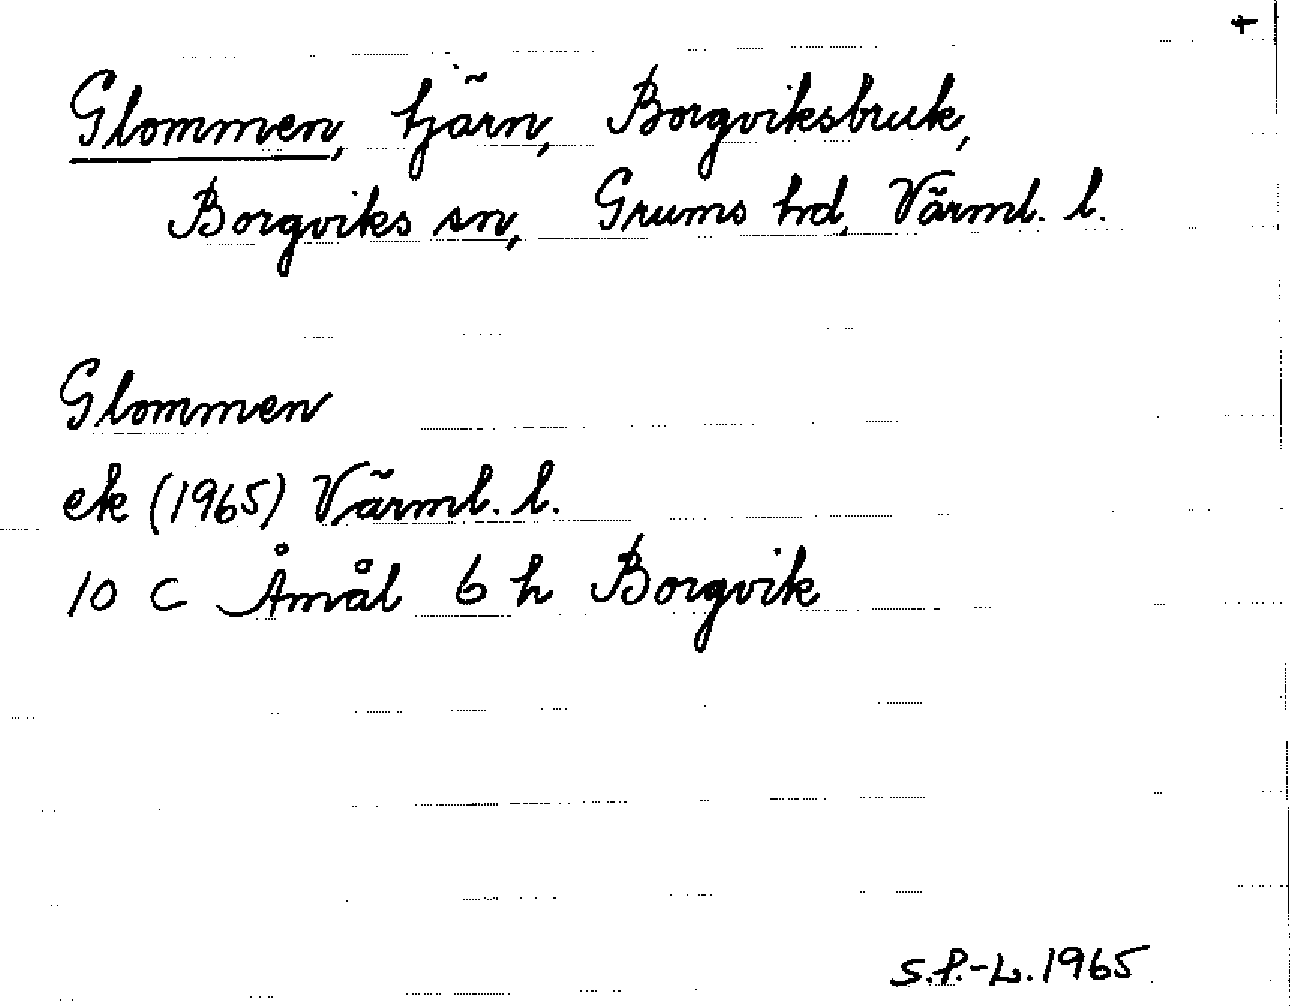 Glommen, tjärn, Borgviksbruk,
Borgviks sn, Grums hd, Värml. l.
Glommen
ek (1965) Värml. l.
10 C Åmål 6 h Borgvik
S.P.-L. 1965